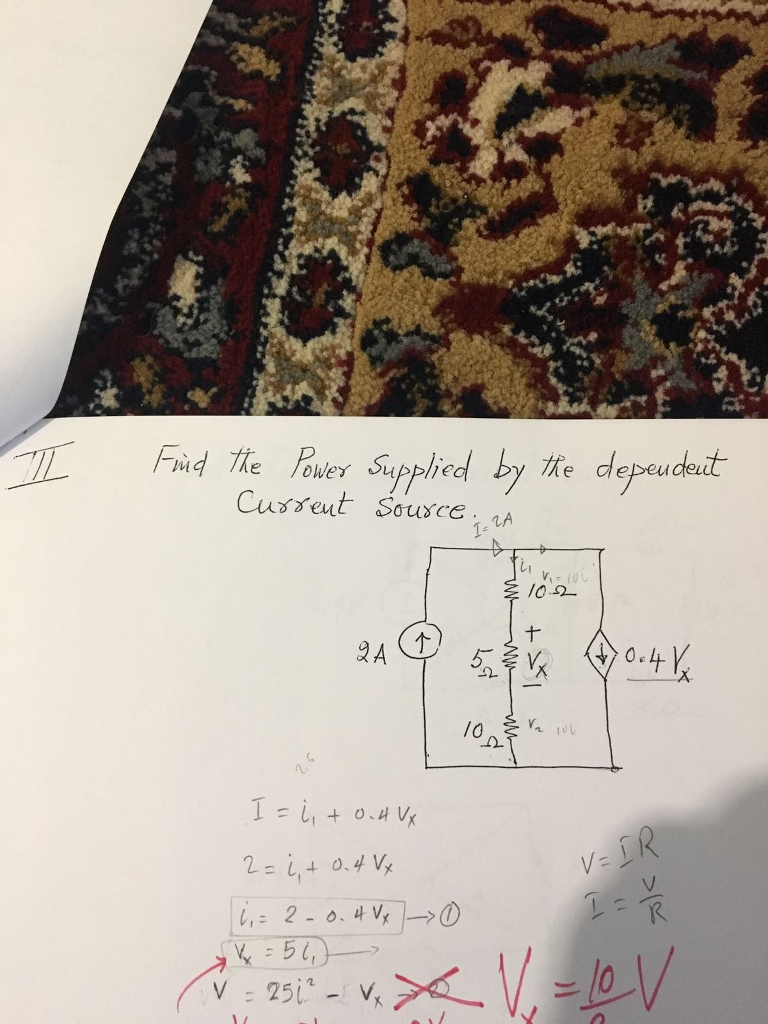 III Find the Power Supplied by the dependent
Current Source.
I = 2A
i₁
V₁ = 10i
10Ω
+
2A
5Ω
Vx
0.4 Vx
−
10Ω
V₂ 10i
I = i₁ + 0.4 Vx
2 = i₁ + 0.4 Vx
V = IR
i₁ = 2 - 0.4 Vx → ①
I = V/R
Vx = 5i₁ →
V = 25i² - Vx
Vx = 10/ V